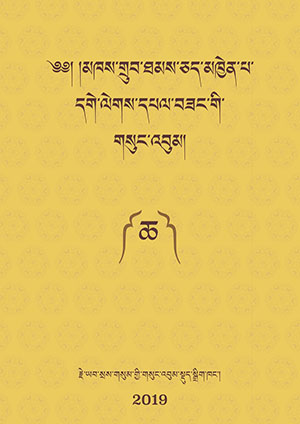 ༄༅། །མཁས་གྲུབ་ཐམས་ཅད་མཁྱེན་པ་
དགེ་ལེགས་དཔལ་བཟང་གི་
གསུང་འབུམ།
ཆ
རྗེ་ཡབ་སྲས་གསུམ་གྱི་གསུང་འབུམ་སྡུད་སྒྲིག་ཁང་།
2019